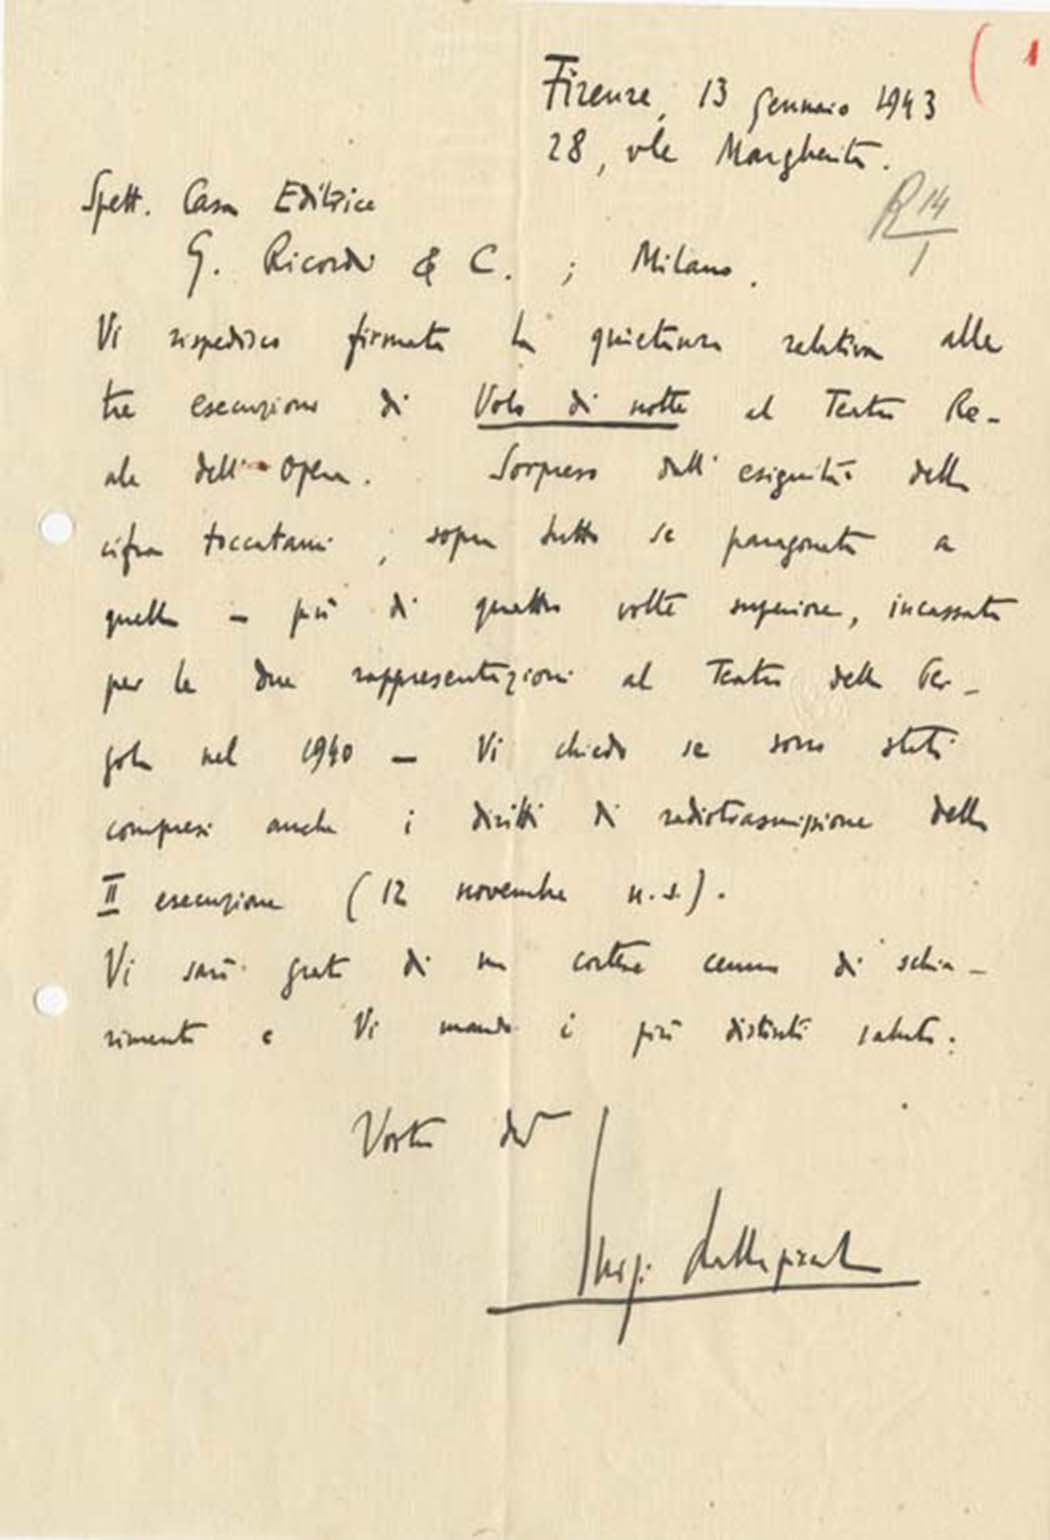 ( 1
Firenze, 13 gennaio 1943
28, vle Margherita.
R 14/1
Spett. Casa Editrice
G. Ricordi & C. ; Milano.
Vi rispedisco firmata la quietanza relativa alle
tre esecuzioni di Volo di notte al Teatro Re-
ale dell'Opera. Sorpreso dall'esiguità della
cifra toccatami, sopra tutto se paragonata a
quella – più di quattro volte superiore, incassata
per le due rappresentazioni al Teatro della Per-
gola nel 1940 – Vi chiedo se sono stati
compresi anche i diritti di radiotrasmissione della
II esecuzione (12 novembre u.s.).
Vi sarò grato di un cortese cenno di schia-
rimento e Vi mando i più distinti saluti.
Vostro dev
Luigi Dallapiccola